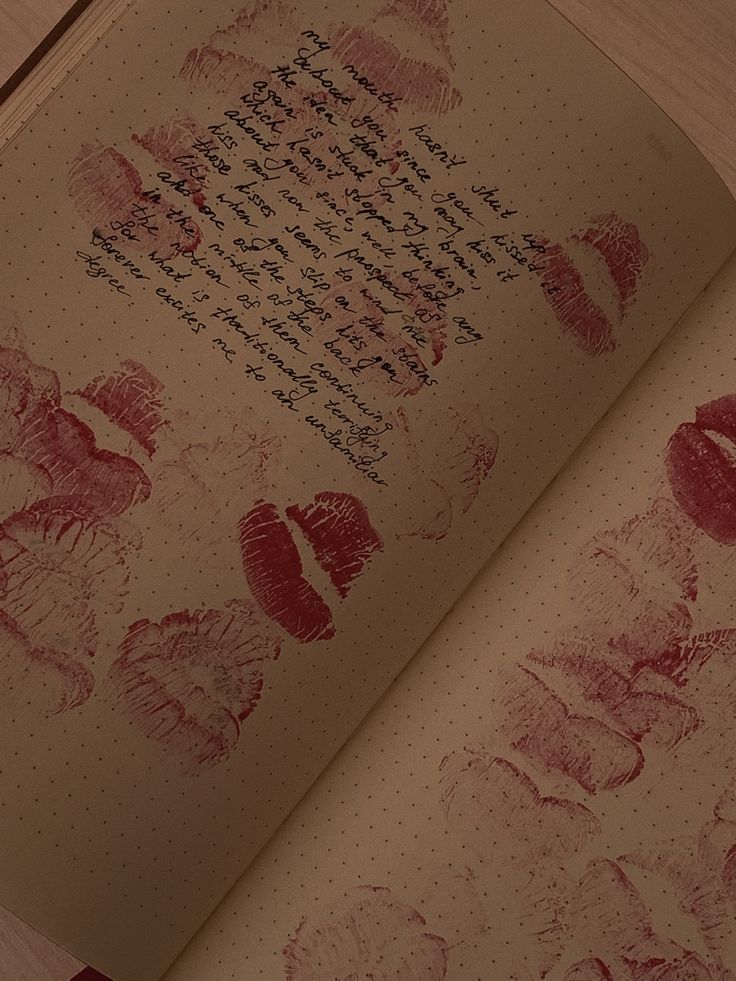 my mouth hasn't shut up
about you since you kissed it
the idea that you may kiss it
again is stuck in my brain,
which hasn't stopped thinking
about you since, well before any
kiss and now the prospect of
those kisses seems to wind me
like when you slip on the stairs
and one of the steps hits you
in the middle of the back
the notion of them continuing
for what is traditionally terrifying
forever excites me to an unfamiliar
degree